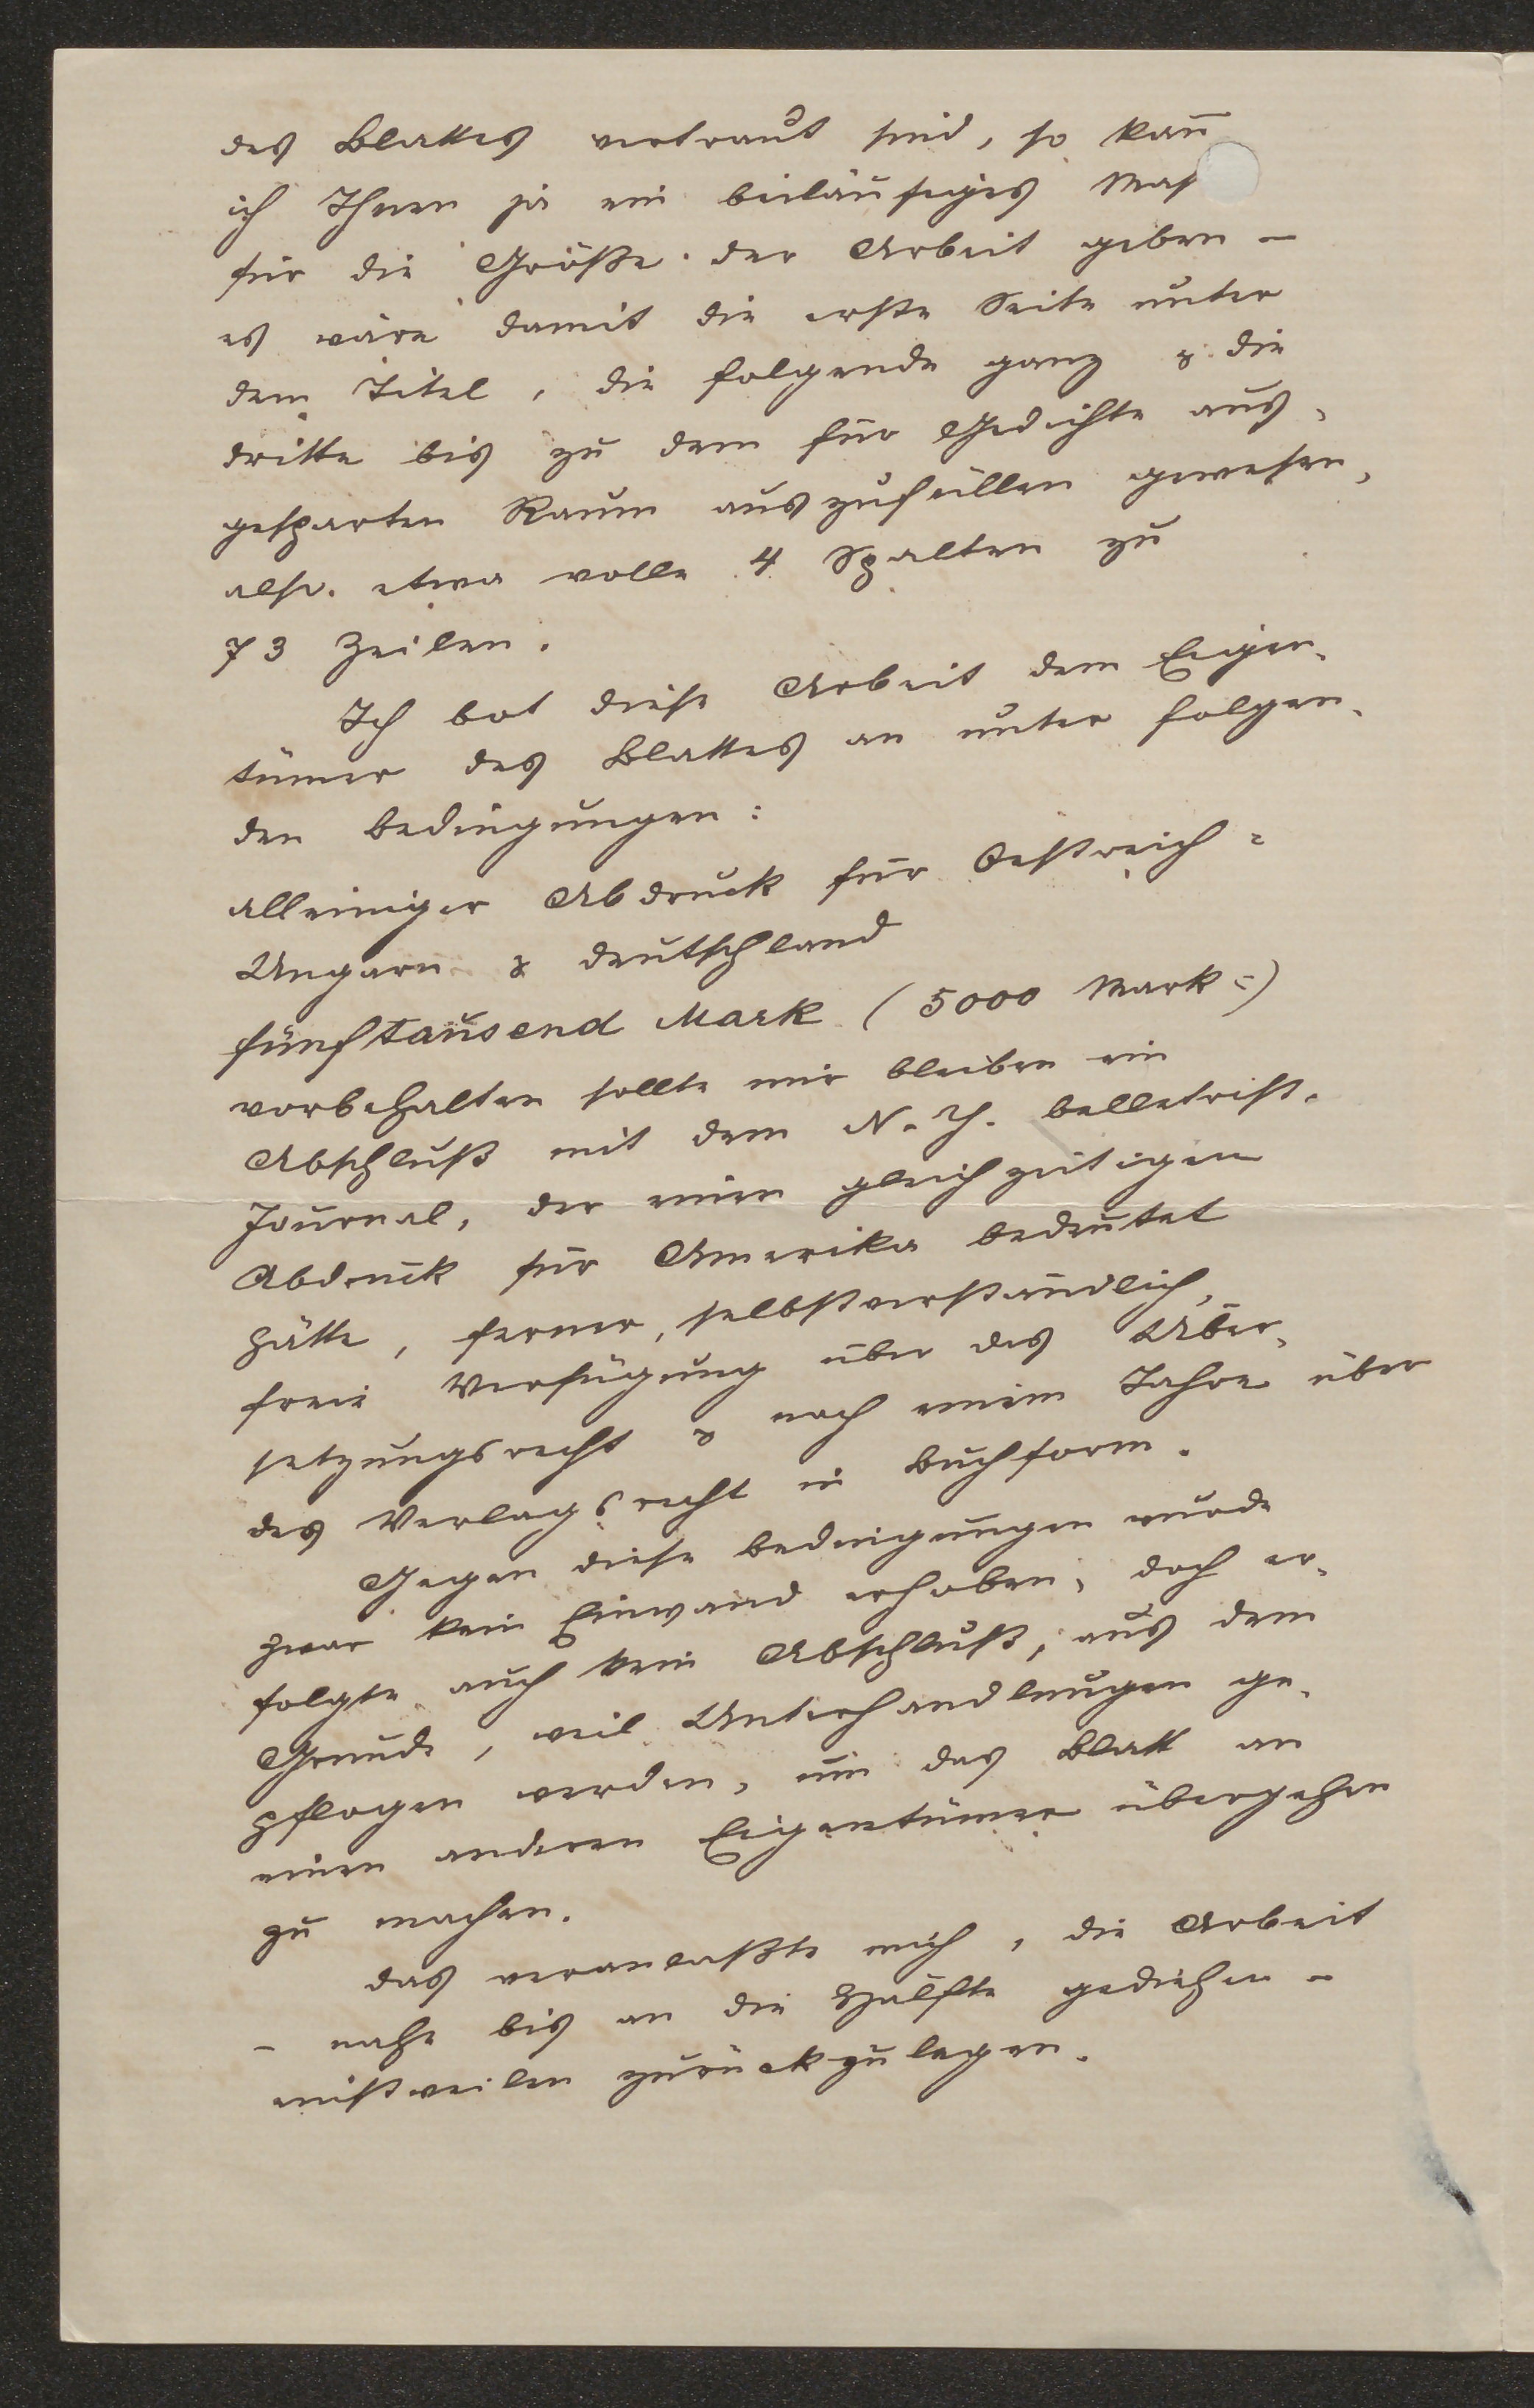 des Blattes vertraut sind, so kan̄
ich Ihnen ja ein beiläufiges Mas
für die Größe der Arbeit geben –
es wäre damit die erste Seite unter
dem Titel, die folgende ganz & die
dritte bis zu dem für Gedichte aus-
gesparten Raum auszufüllen gewesen,
also etwa volle 4 Spalten zu
73 Zeilen.
Ich bot diese Arbeit dem Eigen-
tümer des Blattes an unter folgen-
den Bedingungen:
alleiniger Abdruck für Oestreich=
Ungarn & Deutschland
fünftausend Mark (5000 Mark=)
vorbehalten sollte mir bleiben ein
Abschluß mit dem N.Y. belletrist.
Journal, der einen gleichzeitigen
Abdruck für Amerika bedeutet
hätte, ferner, selbstverständlich,
freie Verfügung über das Über-
setzungsrecht & nach einem Jahre über
das Verlagsrecht in Buchform.
Gegen diese Bedingungen wurde
zwar kein Einwand erhoben, doch er-
folgte auch kein Abschluß, aus dem
Grunde, weil Unterhandlungen ge-
pflogen werden, um das Blatt an
einen anderen Eigentümer übergehen
zu machen.
Das veranlaßte mich, die Arbeit
– nahe bis an die Hälfte gediehen –
einstweilen zurückzulegen.